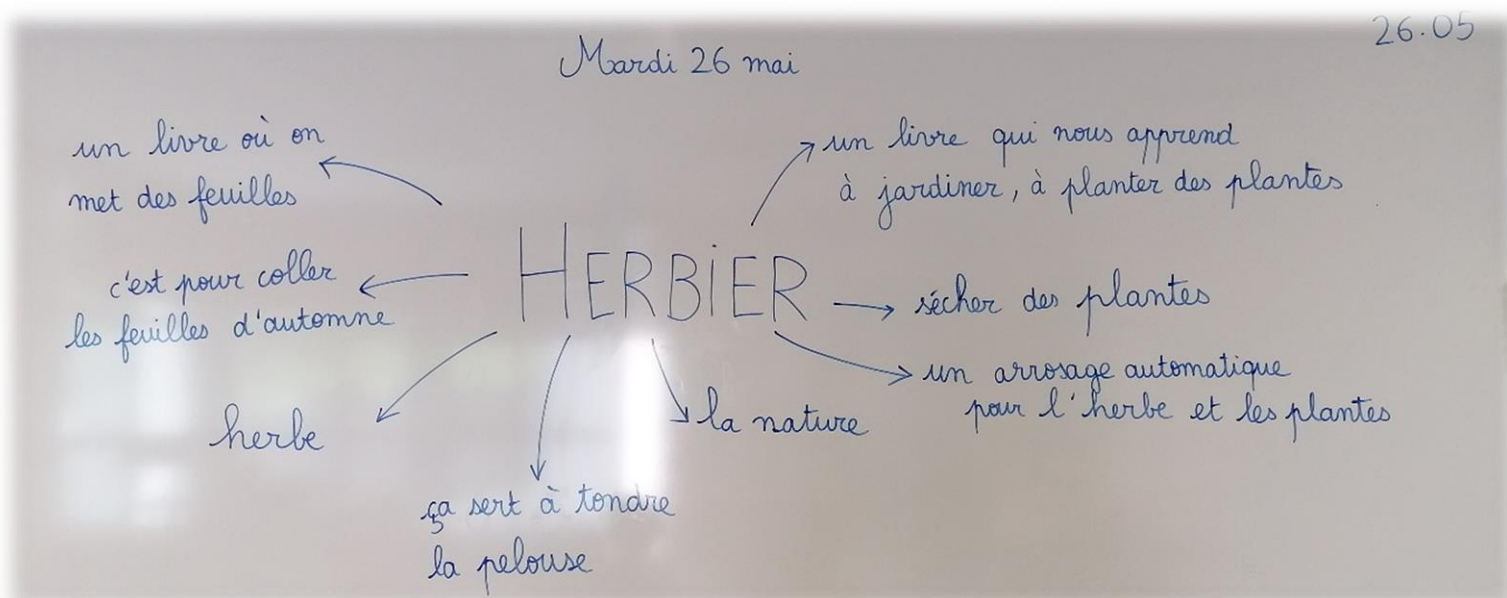 26.05
Mardi 26 mai
un livre où on
met des feuilles
un livre qui nous apprend
à jardiner, à planter des plantes
HERBiER
c'est pour coller
les feuilles d'automne
sécher des plantes
un arrosage automatique
pour l'herbe et les plantes
herbe
la nature
ça sert à tondre
la pelouse